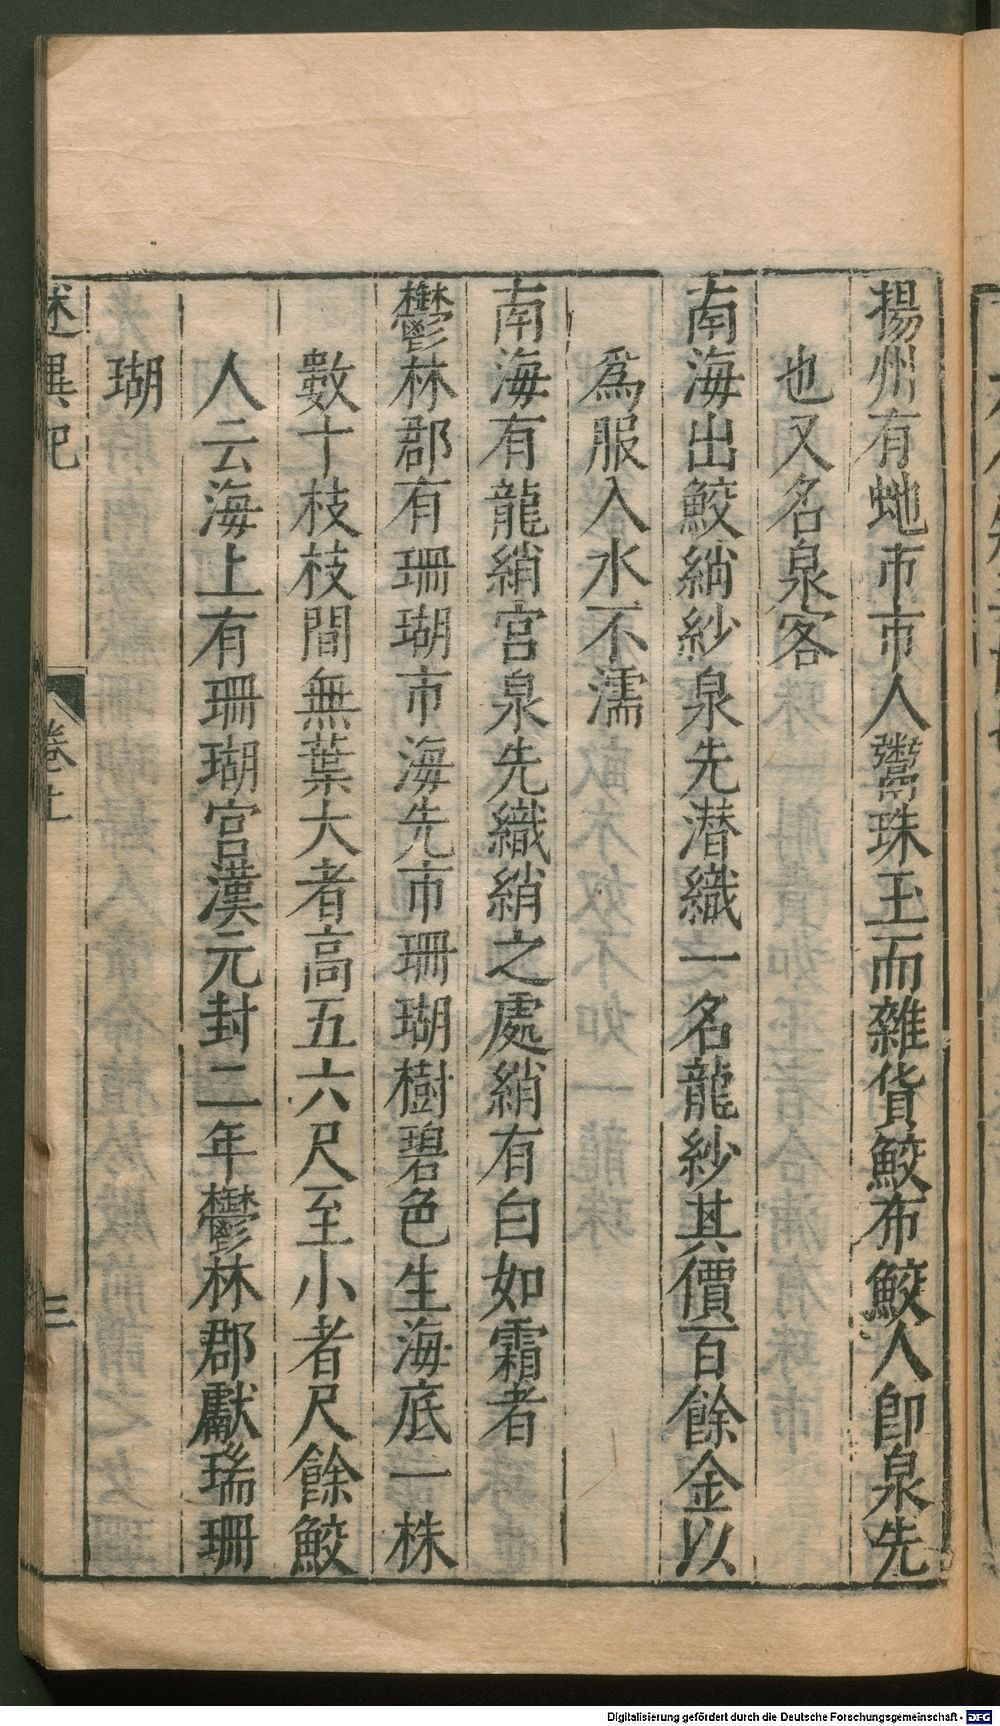 揚州有虵市市人鬻珠玉而雜貨鮫布鮫人卽泉先
也又名泉客
南海出鮫綃紗泉先潛織一名龍紗其價百餘金以
爲服入水不濡
南海有龍綃宮泉先織綃之處綃有白如霜者
鬱林郡有珊瑚市海先市珊瑚樹碧色生海底一株
數十枝枝間無葉大者高五六尺至小者尺餘鮫
人云海上有珊瑚宮漢元封二年鬱林郡獻瑞珊
瑚
述異記 卷上 三
Digitalisierung gefördert durch die Deutsche Forschungsgemeinschaft - DFG